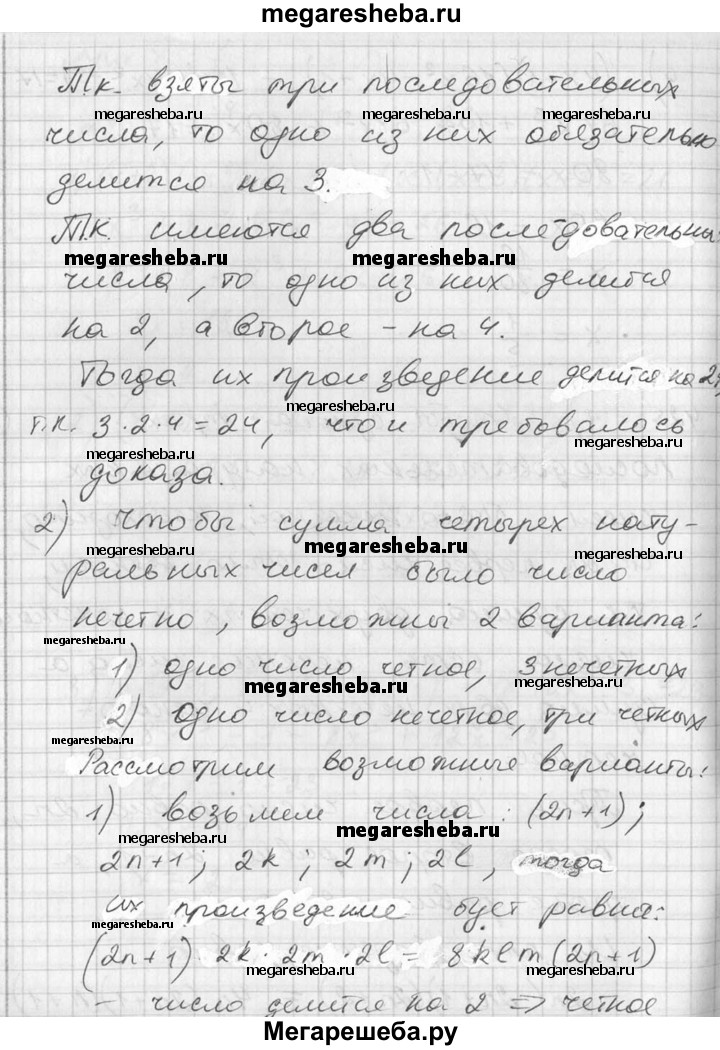 megaresheba.ru
Т.к. взяты три последовательных
megaresheba.ru megaresheba.ru megaresheba.ru
числа, то одно из них обязательно
делится на 3.
Т.к. имеются два последовательны
megaresheba.ru megaresheba.ru megaresheba.ru
числа, то одно из них делится
на 2, а второе - на 4.
Тогда их произведение делится на 24,
megaresheba.ru
т.к. 3·2·4=24, что и требовалось
megaresheba.ru megaresheba.ru
доказа.
2) чтобы сумма четырех нату-
megaresheba.ru megaresheba.ru megaresheba.ru
ральных чисел было число
нечетно, возможны 2 варианта:
megaresheba.ru
1) одно число четное, 3 нечетных
megaresheba.ru megaresheba.ru
2) одно число нечетное, три четных
megaresheba.ru
Рассмотрим возможные варианты:
1) возьмем числа: (2n+1);
megaresheba.ru megaresheba.ru
2n+1; 2k; 2m; 2l, тогда
их произведение бует равна:
megaresheba.ru megaresheba.ru
(2n+1)·2k·2m·2l = 8klm(2n+1)
megaresheba.ru megaresheba.ru
- число делится на 2 ⇒ четное
Мегарешеба.ру